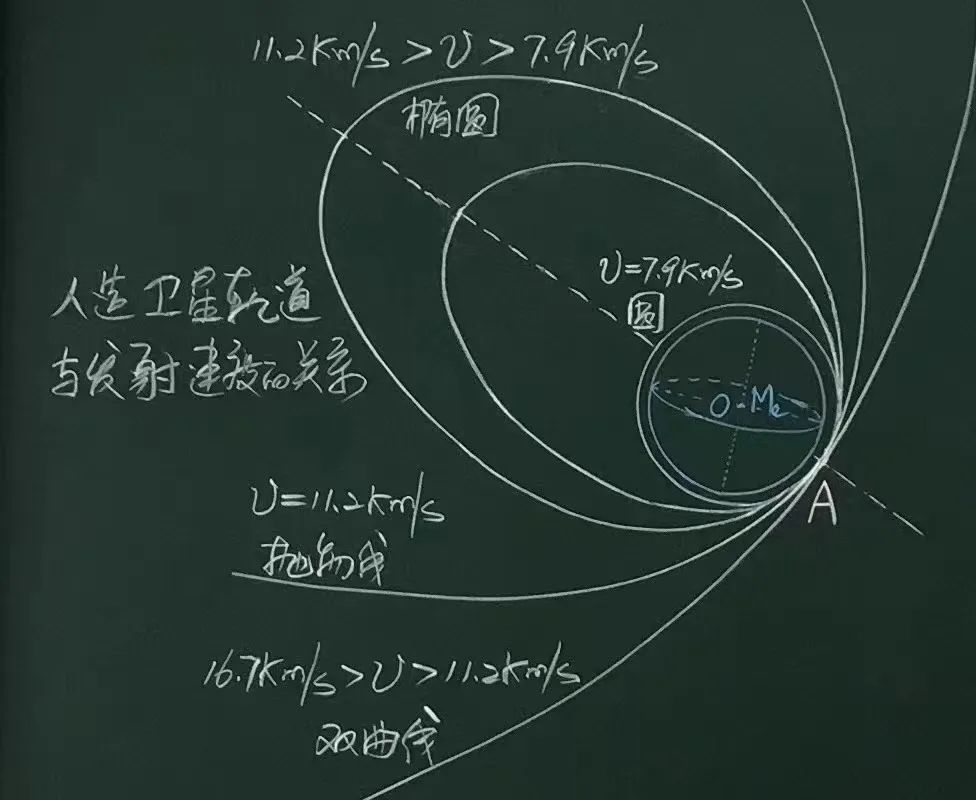 11.2Km/s > v > 7.9Km/s
椭圆
v=7.9Km/s
圆
人造卫星轨道
与发射速度的关系
O Me
A
v=11.2Km/s
抛物线
16.7Km/s > v > 11.2Km/s
双曲线